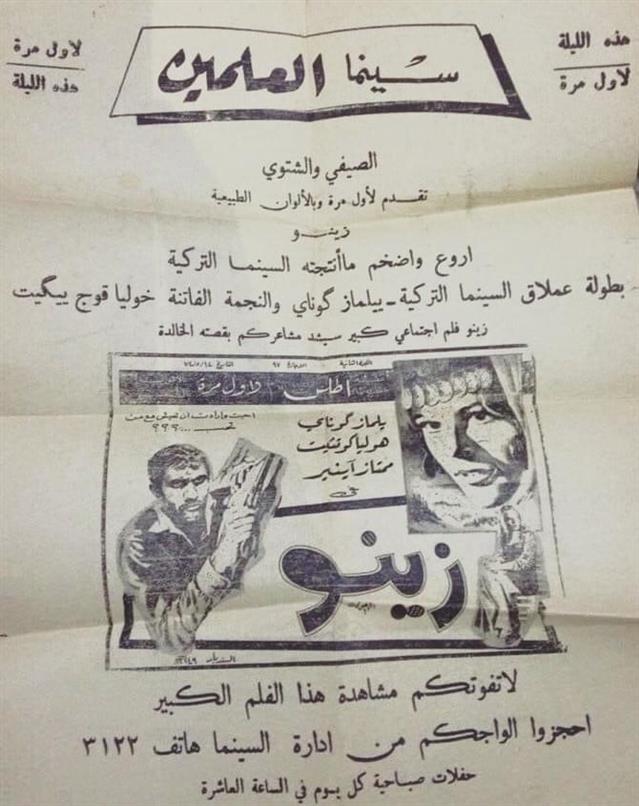 هذه الليلة
لأول مرة
سينما العلمين
لأول مرة
هذه الليلة
الصيفي والشتوي
تقدم لأول مرة وبالألوان الطبيعية
زينو
اروع واضخم ماأنتجته السينما التركية
بطولة عملاق السينما التركية - ييلماز گوناي والنجمة الفاتنة خوليا قوج ييگيت
زينو فلم اجتماعي كبير سيشد مشاعركم بقصته الخالدة
اطلس ولأول مرة
احبت وارادت ان تعيش مع من
تحب ... ؟؟؟
يلماز گوناي
هوليا كوتشيت
ممتاز آينير
في
زينو
لاتفوتكم مشاهدة هذا الفلم الكبير
احجزوا الواجكم من ادارة السينما هاتف ٣١٢٢
حفلات صباحية كل يوم في الساعة العاشرة